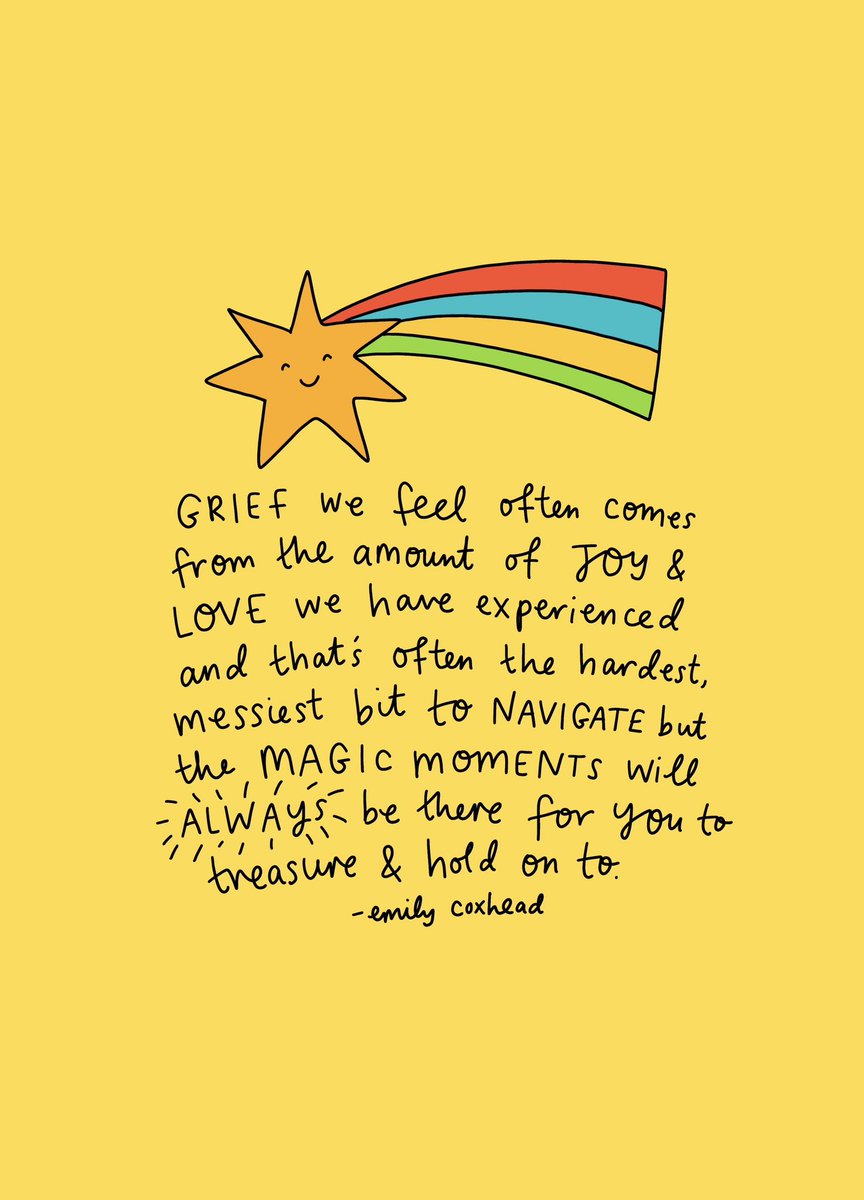 GRIEF we feel often comes
from the amount of JOY &
LOVE we have experienced
and that's often the hardest,
messiest bit to NAVIGATE but
the MAGIC MOMENTS will
ALWAYS be there for you to
treasure & hold on to.
-emily coxhead